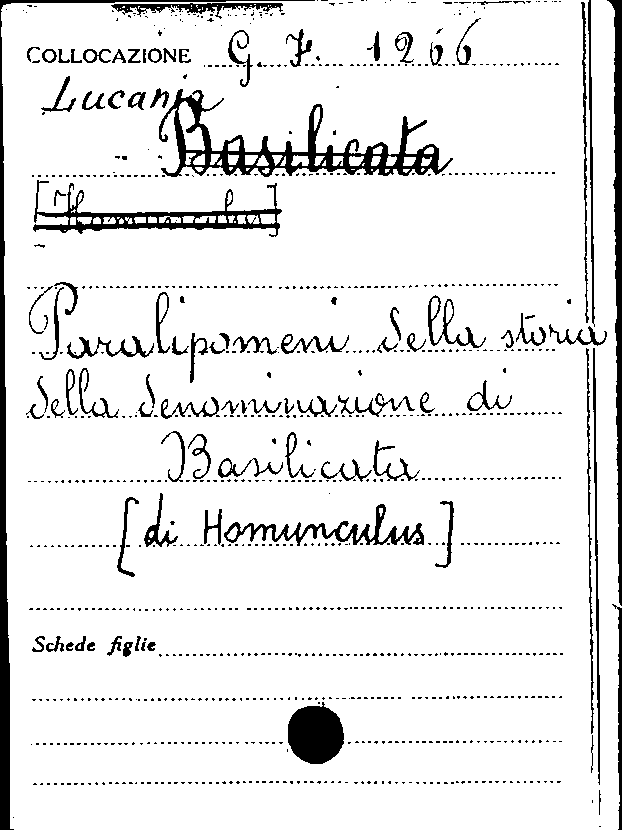 COLLOCAZIONE G. F. 1266
Lucania
Basilicata
[Homunculus]
Paralipomeni della storia
della denominazione di
Basilicata
[di Homunculus]
Schede figlie